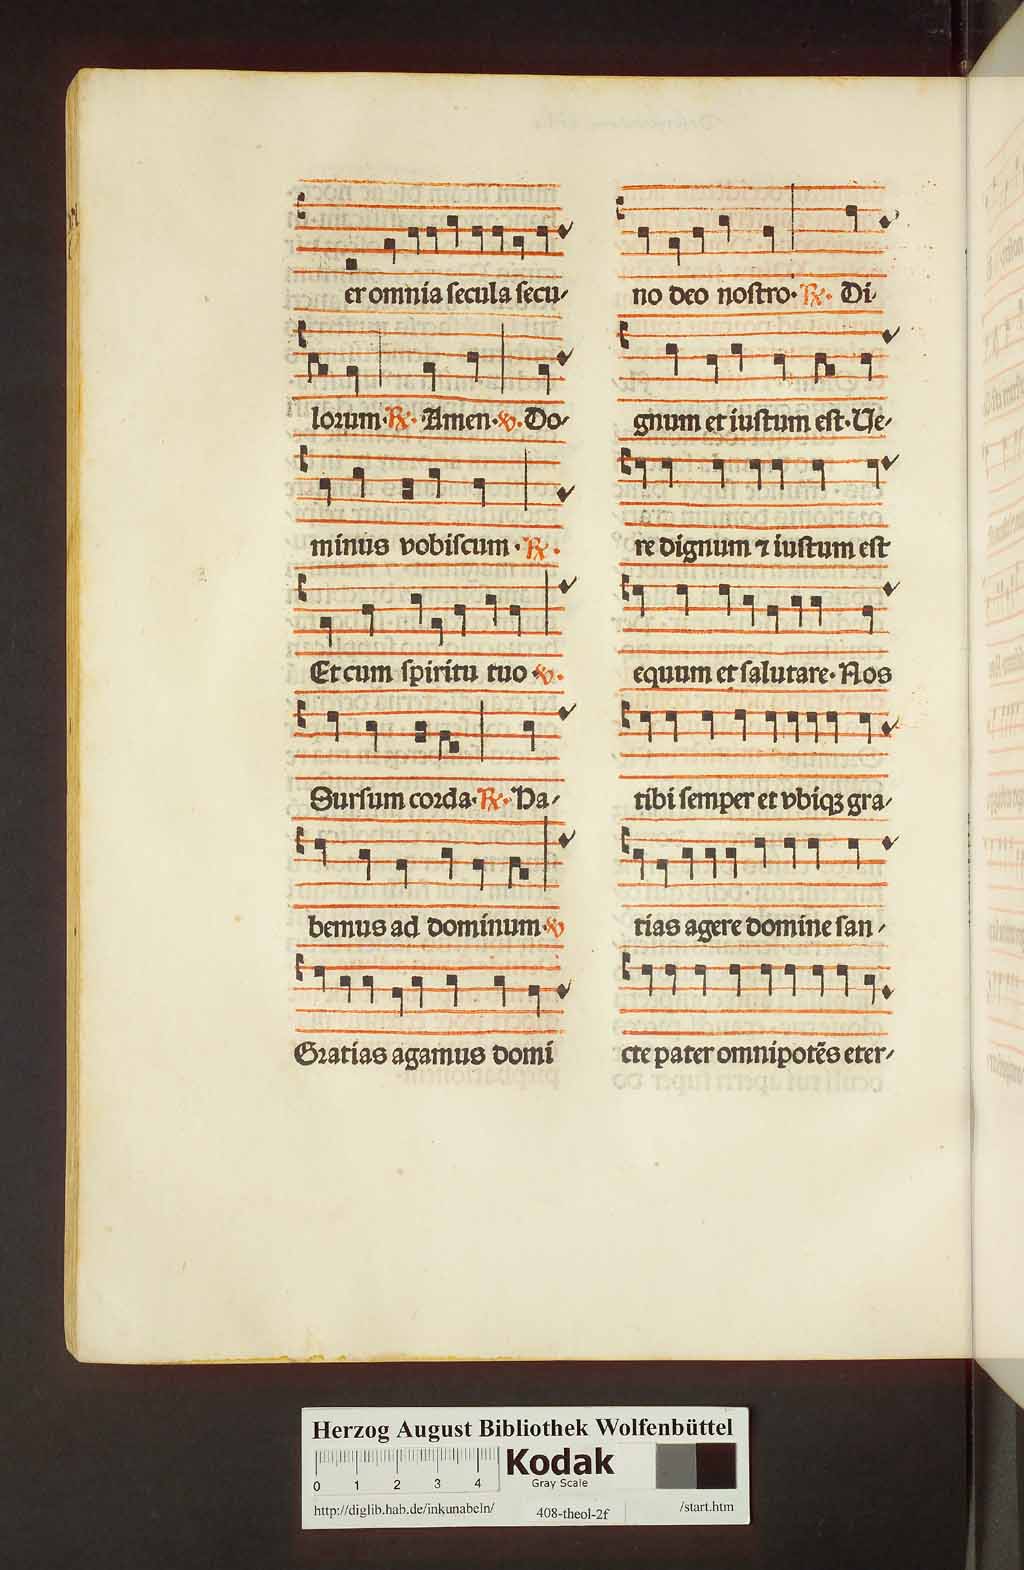 er omnia ſecula ſecu⸗
loꝛum. ℟. Amen. ℣. Do⸗
minus vobiſcum. ℟.
Et cum ſpiritu tuo ℣.
Surſum coꝛda. ℟. Ha⸗
bemus ad dominum. ℣
Gꝛatias agamus domi
no deo noſtro. ℟. Di⸗
gnum et iuſtum eſt. Ue⸗
re dignum ⁊ iuſtum eſt
equum et ſalutare. Nos
tibi ſemper et vbiqꝫ gra⸗
tias agere domine ſan⸗
cte pater omnipotēs eter⸗
Herzog August Bibliothek Wolfenbüttel
Kodak
Gray Scale
0 1 2 3 4
http://diglib.hab.de/inkunabeln/ 408-theol-2f /start.htm